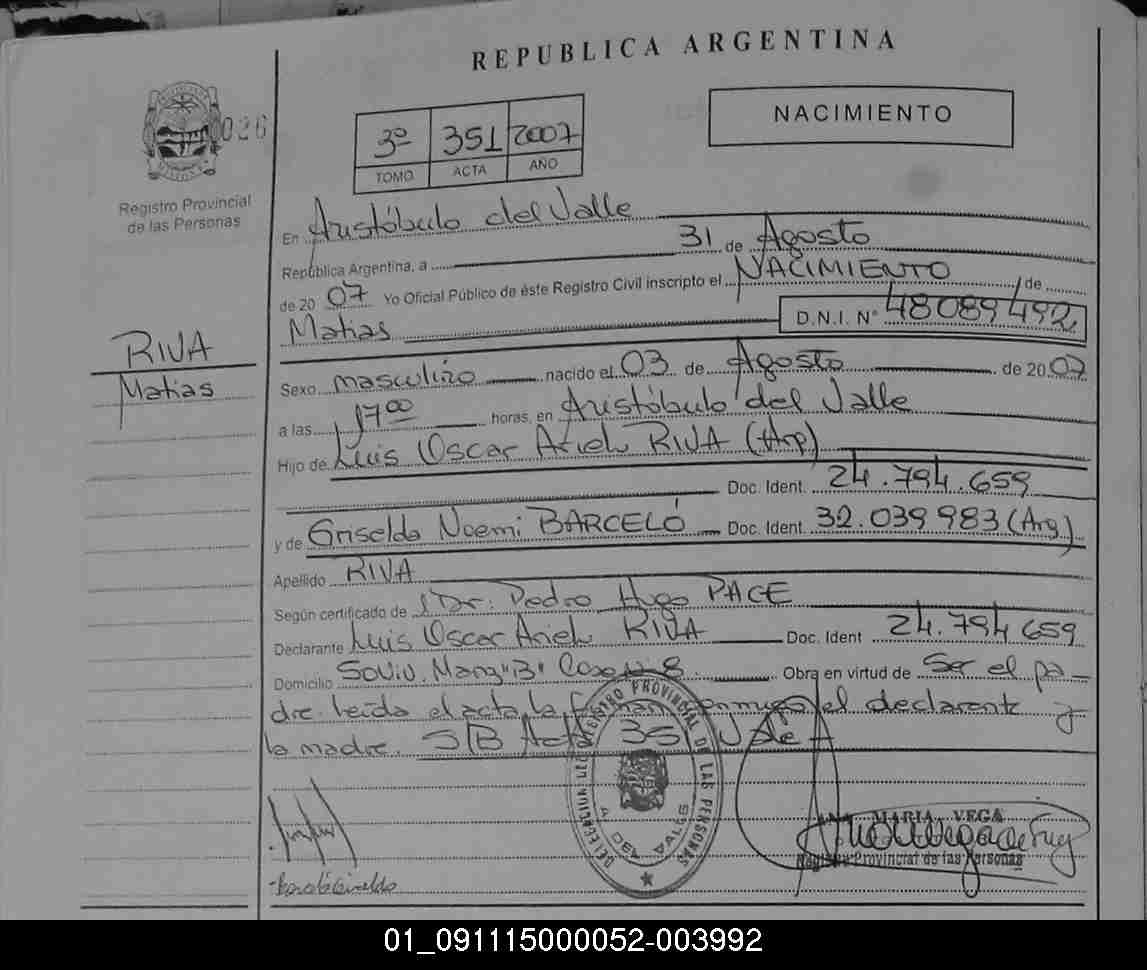 REPUBLICA ARGENTINA
026
NACIMIENTO
3º 351 2007
TOMO ACTA AÑO
Registro Provincial
de las Personas
En Aristóbulo del Valle
República Argentina, a 31 de Agosto
de 20 07 Yo Oficial Público de éste Registro Civil inscripto el NACIMIENTO de
Matias D.N.I. N° 48089492
RIVA
Matias
Sexo masculino nacido el 03 de Agosto de 20 07
a las 17 00 horas, en Aristóbulo del Valle
Hijo de Luis Oscar Ariel RIVA (Arg)
Doc. Ident. 24.794.659
y de Griselda Noemi BARCELÓ Doc. Ident. 32.039 983 (Arg)
Apellido RIVA
Según certificado de Dr. Pedro Hugo PACE
Declarante Luis Oscar Ariel RIVA Doc. Ident 24.794 659
Domicilio 50 Viv. Manz "B" Casa Nº 8 Obra en virtud de Ser el pa-
dre. Leida el acta la firman conmigo el declarante y
la madre. S/B Acta 351 Vale
DELEGACION DEL REGISTRO PROVINCIAL DE LAS PERSONAS
A. DEL VALLE
MARIA VEGA
Registro Provincial de las Personas
01_091115000052-003992